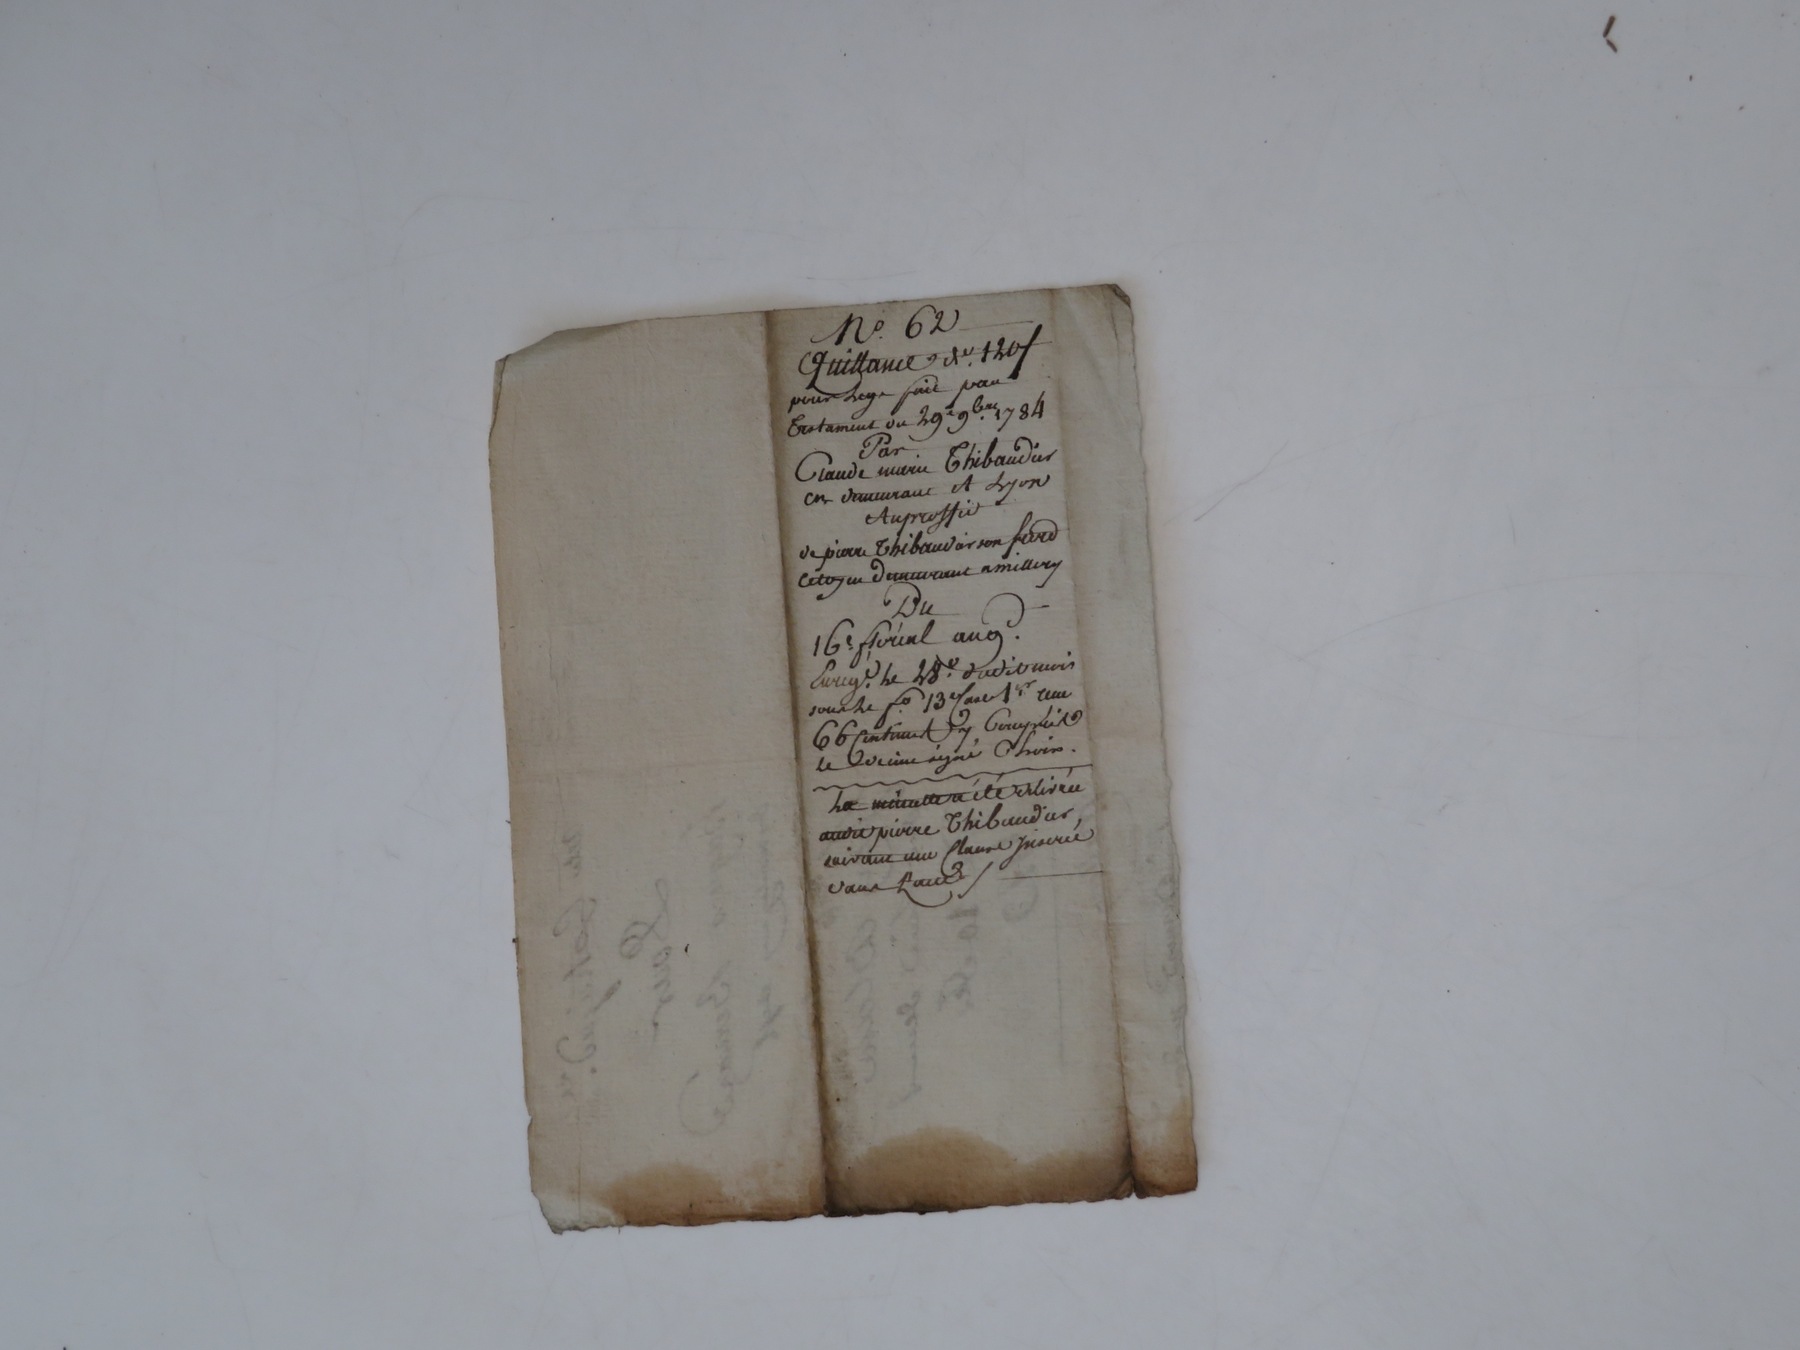 N.o 62
Quittance de 120f
pour legs fait par
testament du 29e 9bre 1784
Par
Claude marie Thibaudier
cn demeurant A Lyon
Auproffit
de pierre Thibaudier son frere
citoyen demeurant a millery
Du
16e floréal an 9.
Enregé. le 28e dudit mois
sous le fo 13 case 1re reçu
66 Centimes y Compris
le decime signé
La minutte a été delivrée
audit pierre Thibaudier,
suivant une Clause Inserée
dans l'acte